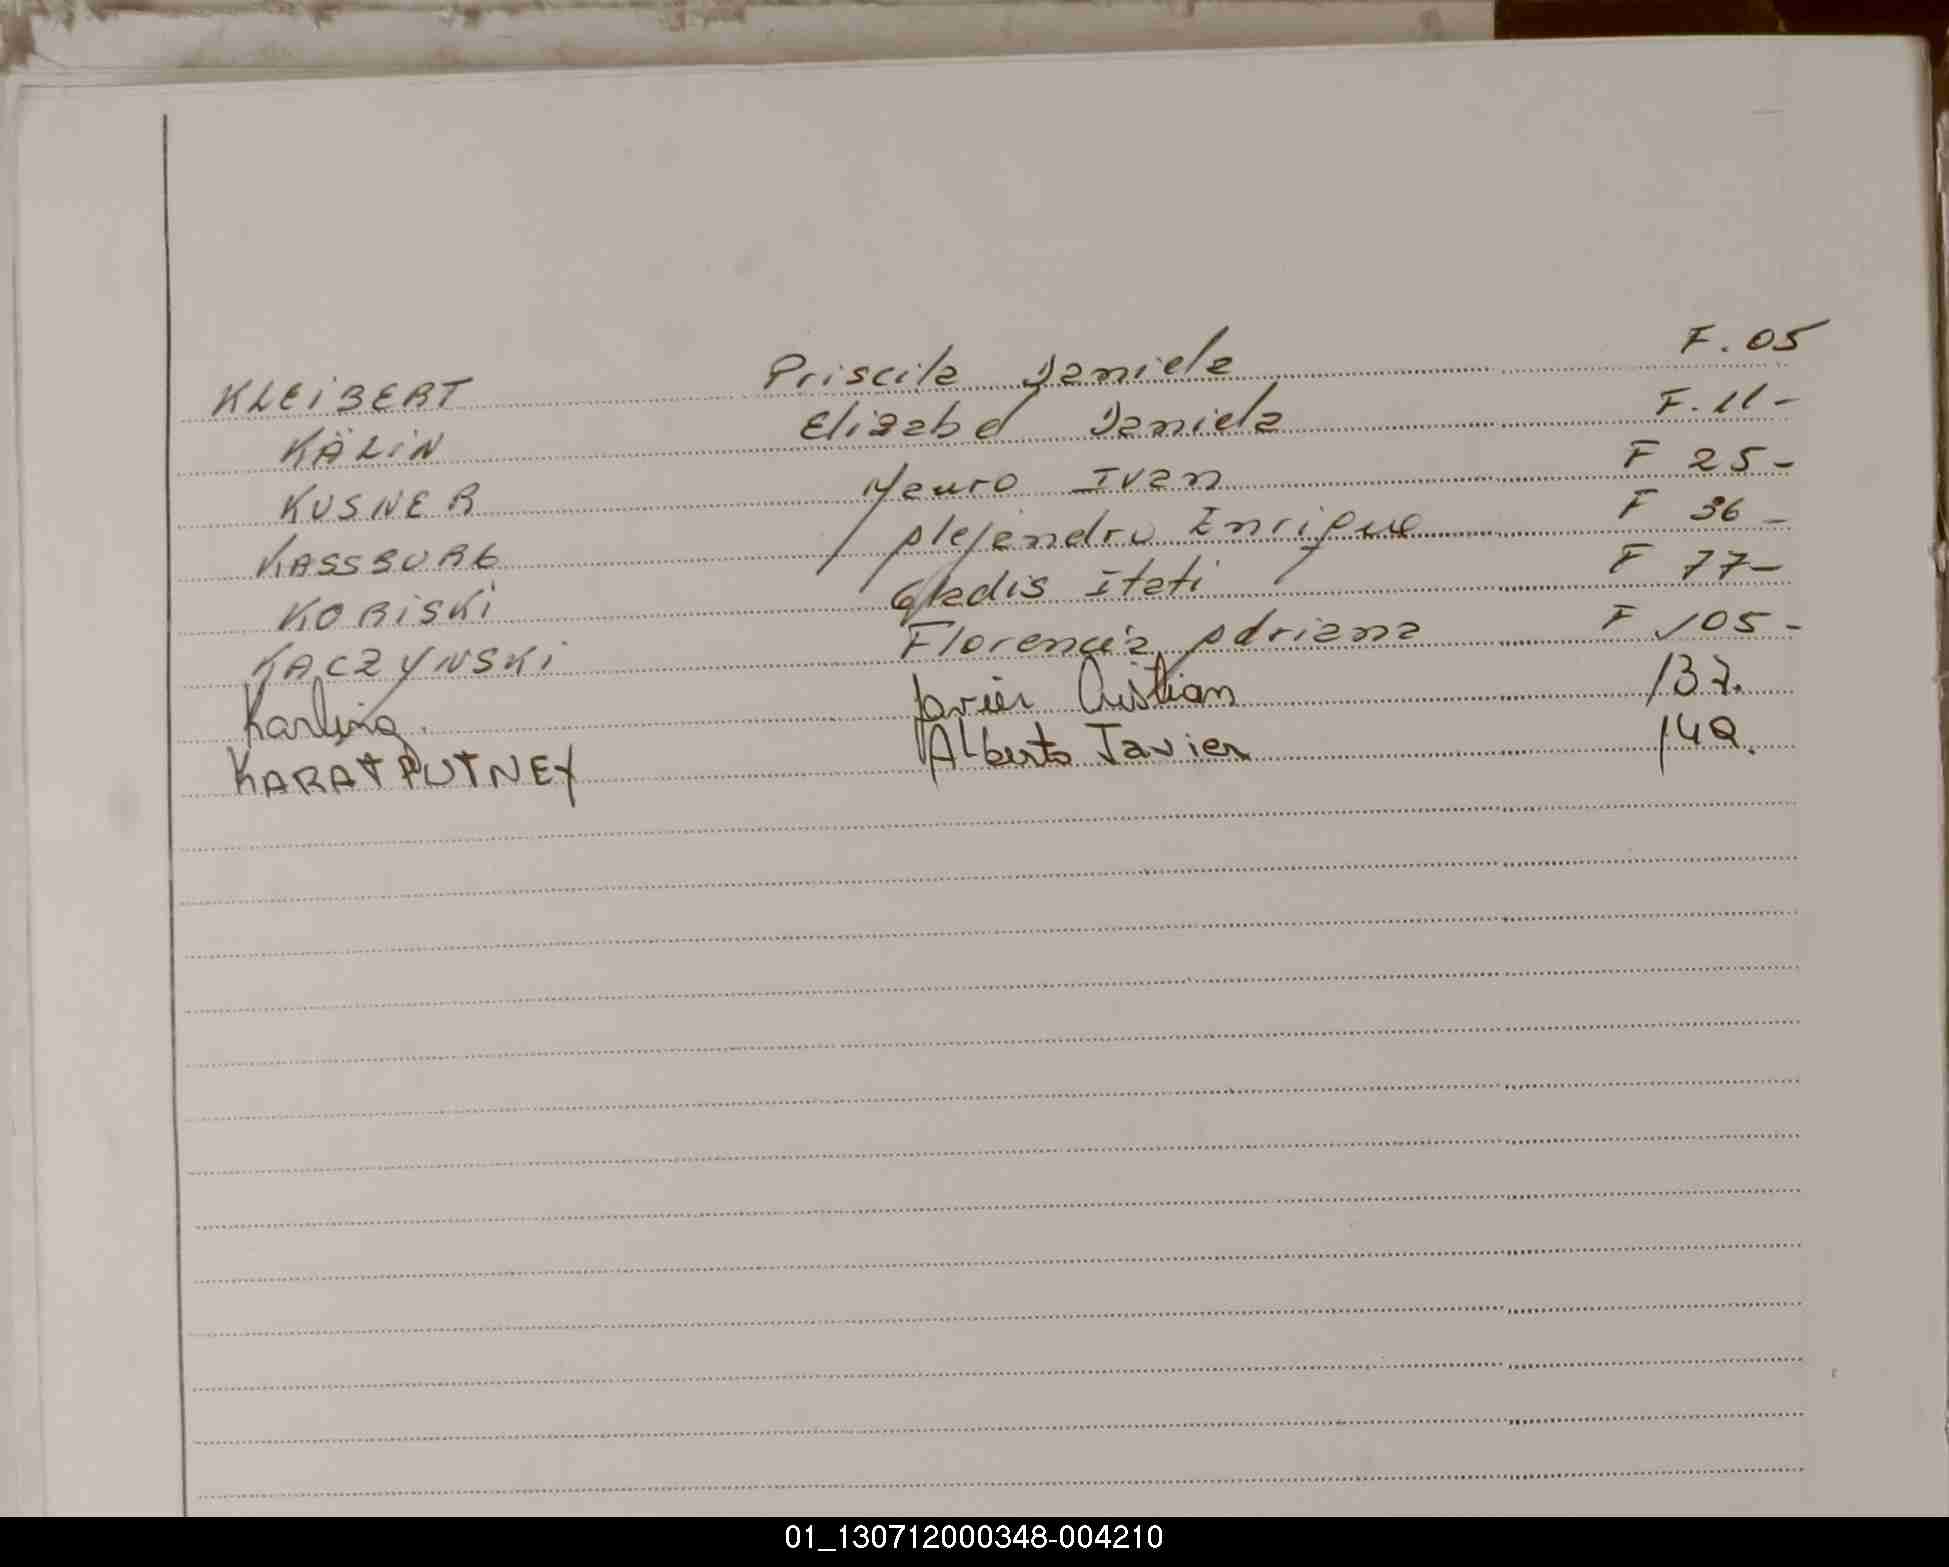 KLEIBERT Priscila Daniela F. 05
KÄLIN Elizabet Daniela F. 11-
KUSNER Mauro Ivan F 25-
KASSBURG Alejandro Enrique F 36-
KORISKI Gladis Itati F 77-
KACZYNSKI Florencia Adriana F 105-
Karling. Javier Cristian 137.
KARATPUTNEY Alberto Javier 142.
01_130712000348-004210